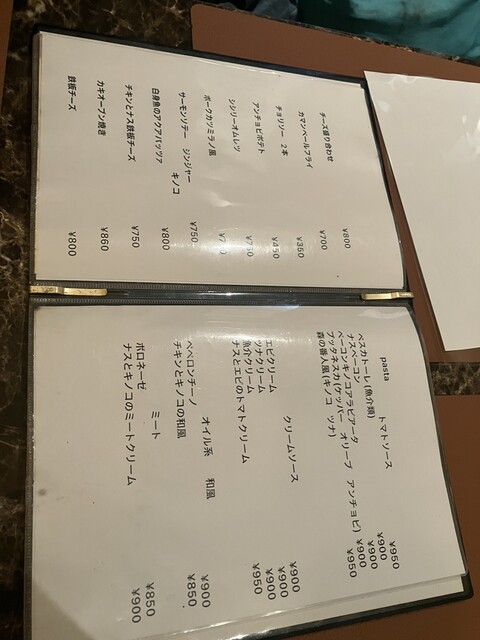 チーズ盛り合わせ ¥800
カマンベールフライ ¥700
チョリソー 2本 ¥350
アンチョビポテト ¥450
シシリーオムレツ ¥750
ポークカツミラノ風
サーモンソテー ジンジャー ¥750
キノコ
白身魚のアクアパッツァ ¥800
チキンとナス鉄板チーズ ¥750
カキオーブン焼き ¥860
鉄板チーズ ¥800
pasta
トマトソース
ペスカトーレ(魚介類) ¥950
ナスベーコン ¥900
ベーコンキノコアラビアータ ¥900
プッタネスカ(ケッパー オリーブ アンチョビ) ¥900
森の番人風(キノコ ツナ) ¥950
クリームソース
エビクリーム ¥900
ツナクリーム ¥900
魚介クリーム ¥900
ナスとエビのトマトクリーム ¥950
オイル系 和風
ペペロンチーノ ¥900
チキンとキノコの和風 ¥850
ミート
ボロネーゼ ¥850
ナスとキノコのミートクリーム ¥900